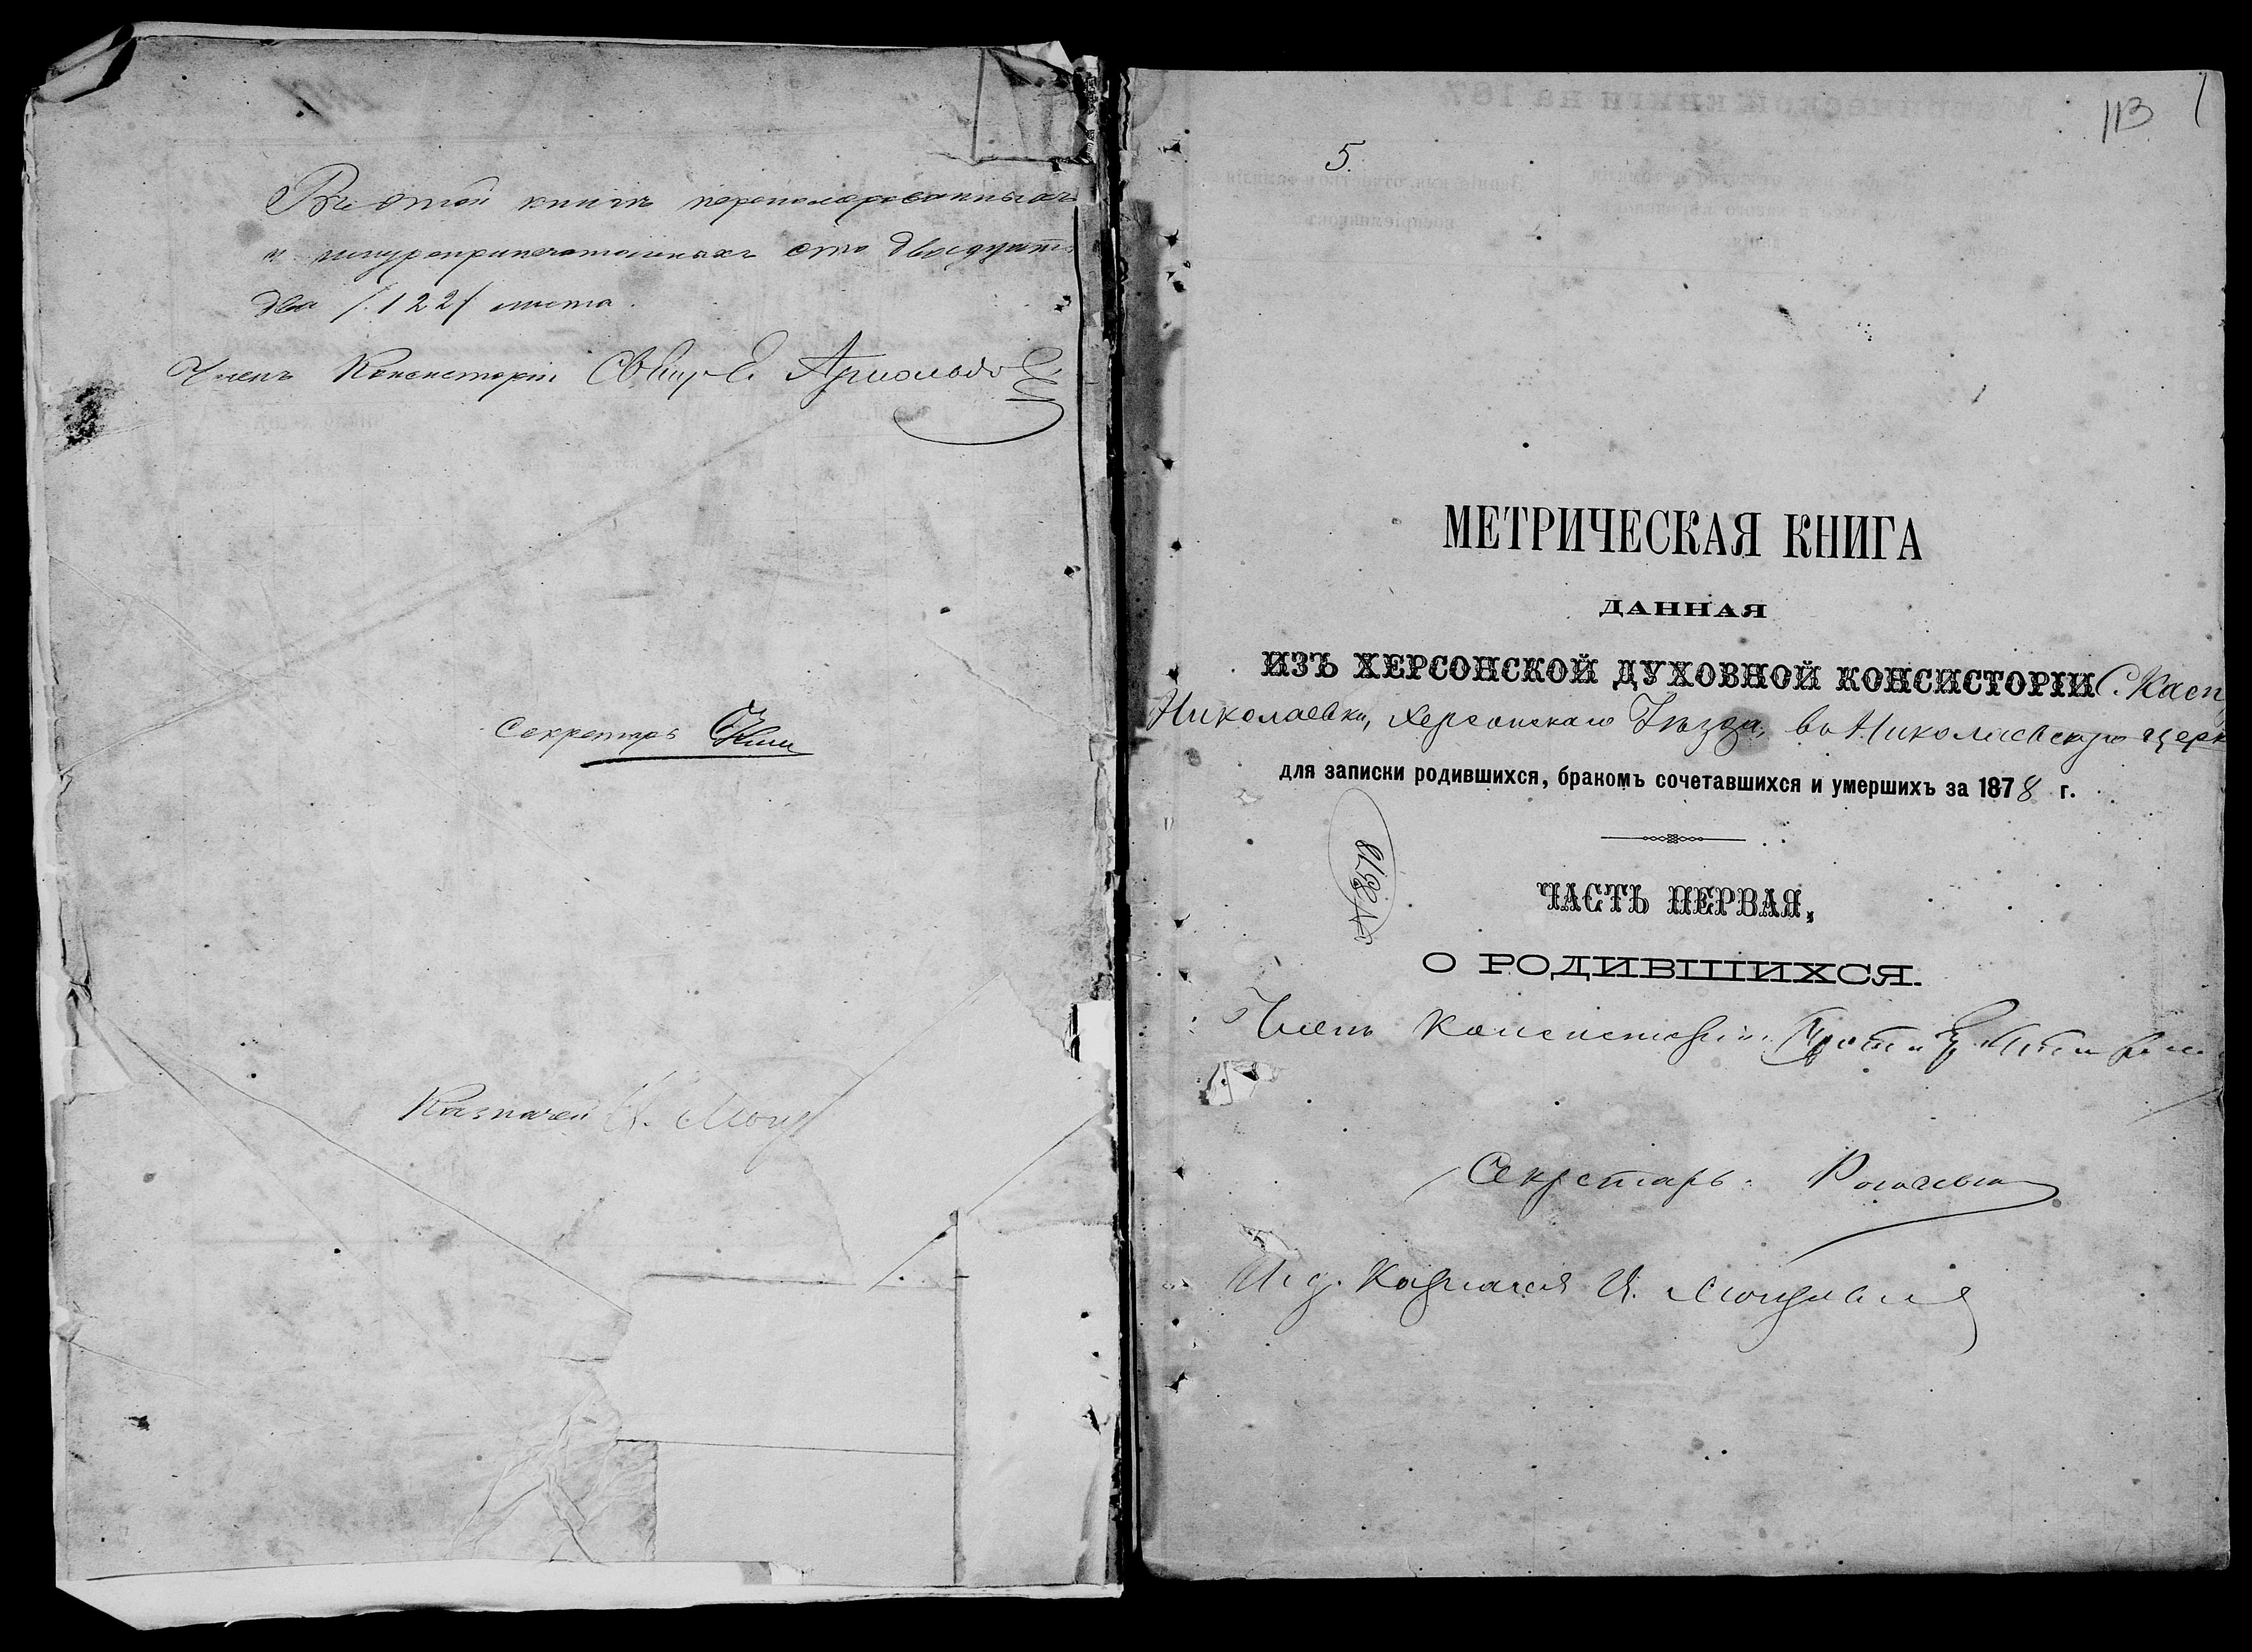 Въ этой книгѣ перенумерованныхъ
и шнуроприпечатанныхъ сто двадцать
два /122/ листа.
Членъ Консисторіи Арнольдо
Секретарь
Казначей
113
5.
МЕТРИЧЕСКАЯ КНИГА
ДАННАЯ
ИЗЪ ХЕРСОНСКОЙ ДУХОВНОЙ КОНСИСТОРІИ С. Касп
Николаевки, Херсонскаго Уѣзда, въ Николаевскую церк
для записки родившихся, бракомъ сочетавшихся и умершихъ за 1878 г.
1878
ЧАСТЬ ПЕРВАЯ,
О РОДИВШИХСЯ.
Членъ Консисторіи
Секретарь
И. д. Казначея